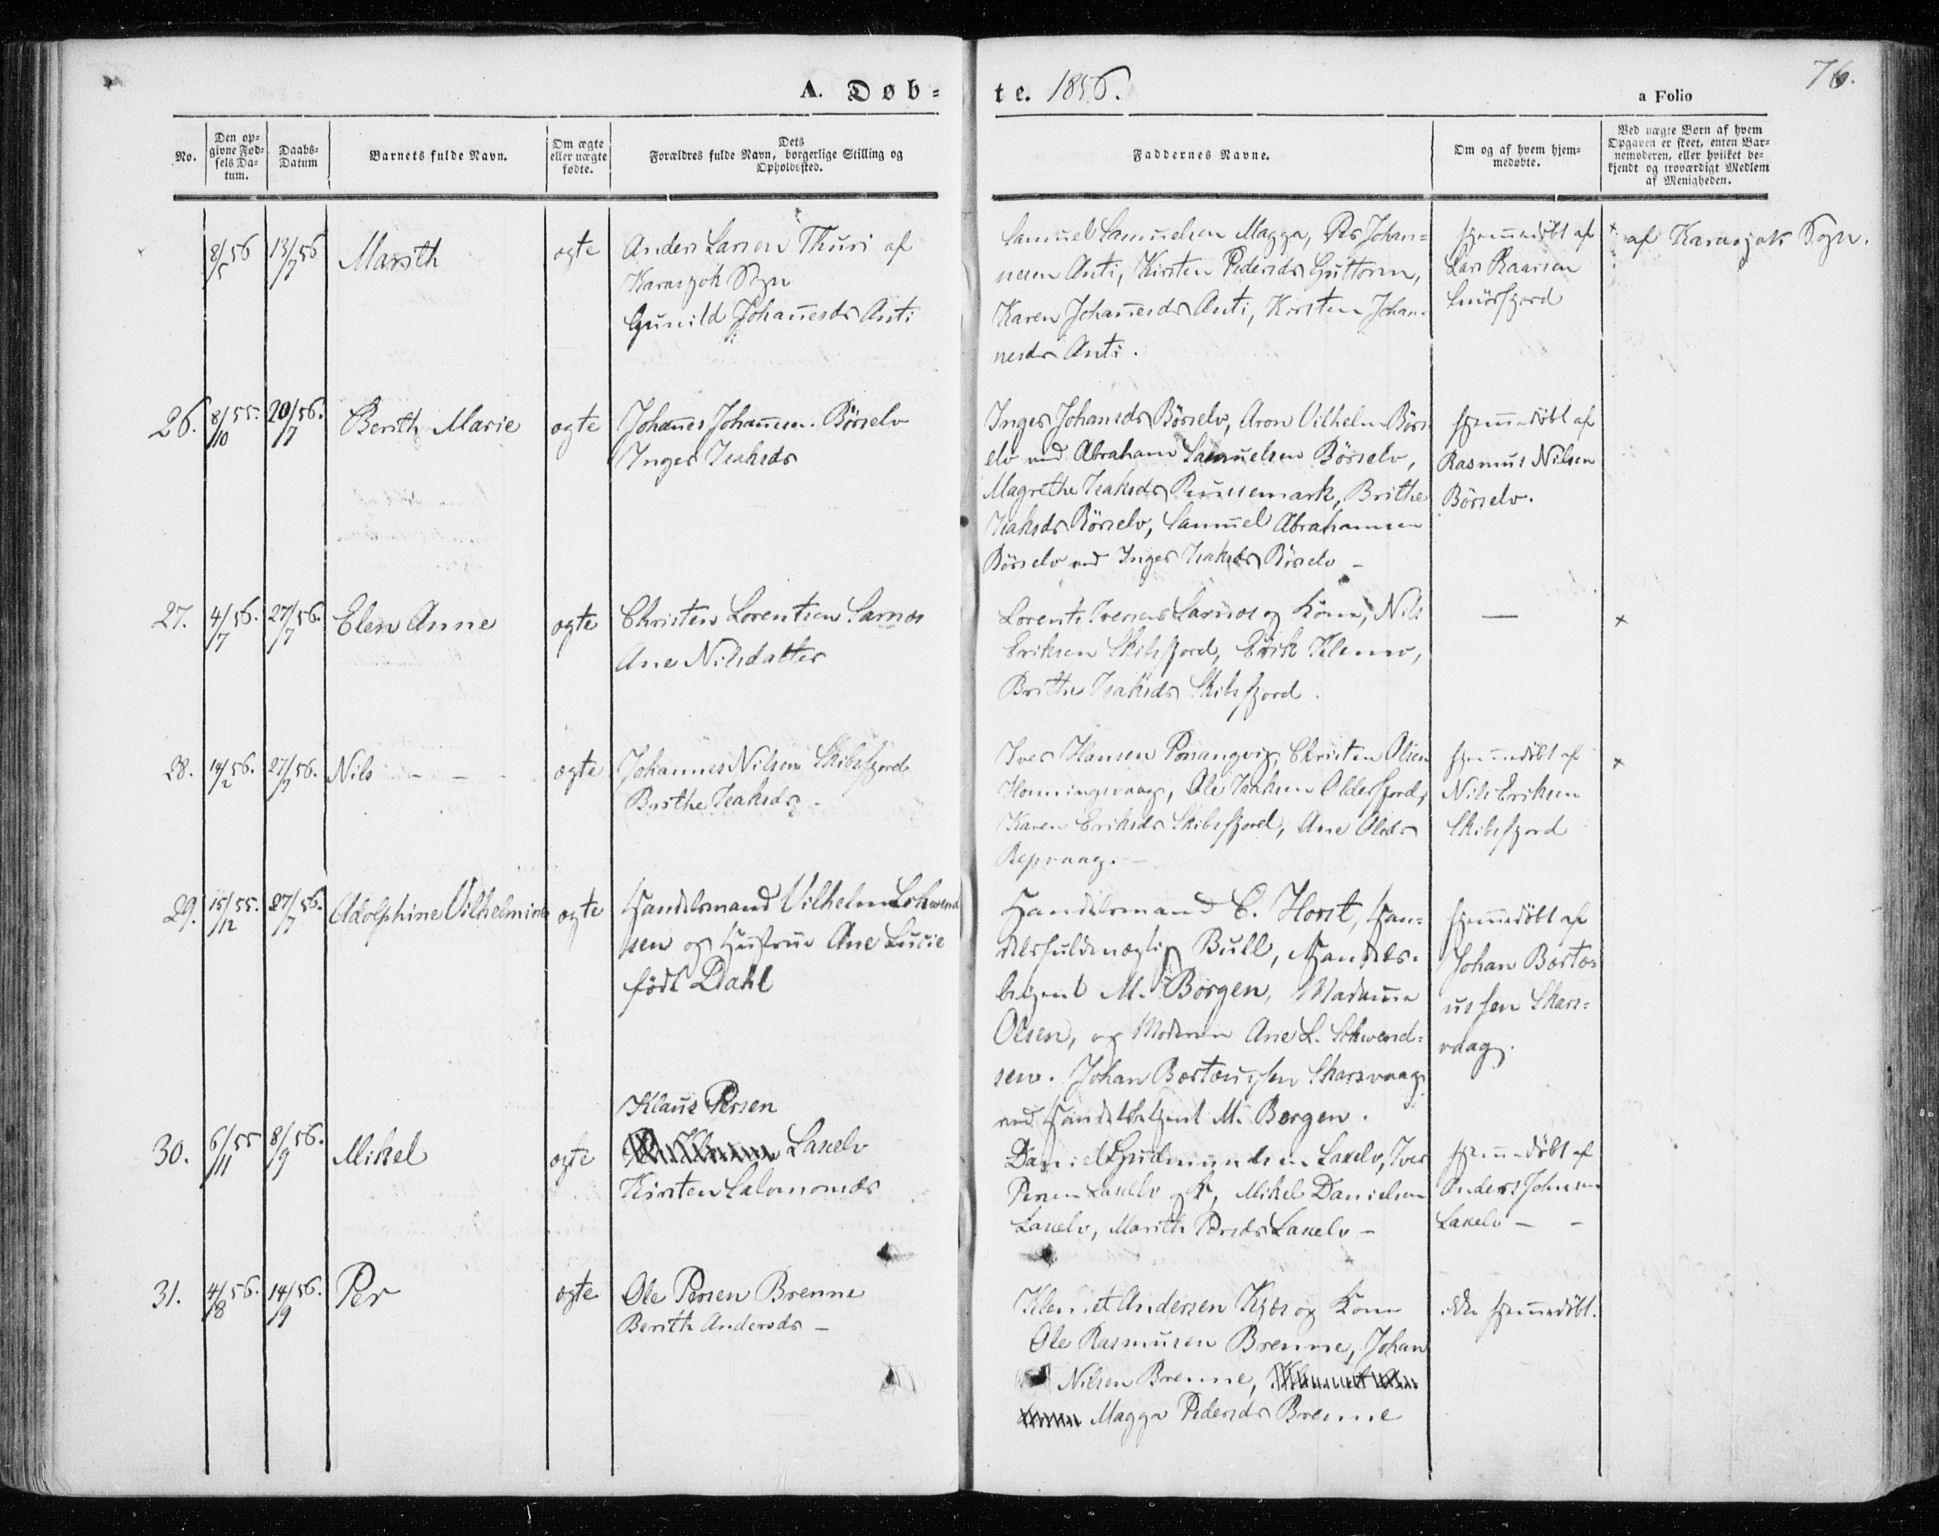 A. Døb-
te. 1856.
76.
a Folio
No.
Den op-
givne Fød-
sels Da-
tum.
Daabs-
Datum
Barnets fulde Navn.
Om ægte
eller uægte
fødte.
Dets
Forældres fulde Navn, borgerlige Stilling og
Opholdssted.
Faddernes Navne.
Om og af hvem hjem-
medøbte.
Ved uægte Børn af hvem
Opgaven er skeet, enten Bar-
nemoderen, eller hvilket be-
kjendt og troværdigt Medlem
af Menigheden.
8/5 56
13/7 56
Marith
ægte
Anders Larsen Thuri af
Karasjok Sogn
Gunild Johannesdr Anti
Samuel Samuelsen Magga, Per Johan-
nesen Anti, Kirsten Pedersdr Guttorm,
Karen Johannesdr Anti, Kirsten Johan-
nesdr Anti.
hjemmedøbt af
Lars
Smørfjord
af Karasjok Sogn.
26.
8/10 55.
20/7 56.
Berith Marie
ægte
Johannes Johannesen Børselv
Inger Isaksdr
Inger Johansdr Børselv, Aron Vilhelm Børs-
elv ved Abraham Samuelsen Børselv,
Magrethe Isaksdr Russemark, Brithe
Isaksdr Børselv, Samuel Abrahamsen
Børselv ved Inger Isaksdr Børselv -
hjemmedøbt af
Rasmus Nilsen
Børselv.
27.
4/7 56.
27/7 56.
Elen Anne
ægte
Christen Lorentsen Sarnos
Ane Nilsdatter
Lorents Iversen Sarnos og Kone, Nils
Eriksen Skibsfjord, Erik Klemo,
Brithe Isaksdr Skibsfjord.
—
x
28.
14/2 56.
27/7 56.
Nils - - -
ægte
Johannes Nilsen Skibsfjord
Berthe Isaksdr -
Iver Hansen Porsangvig, Christen Olsen
Honningsvaag, Ole Isaksen Oldersfjord,
Karen Eriksdr Skibsfjord, Ane Olsdr
Repvaag. -
hjemmedøbt af
Nils Eriksen
Skibsfjord
x
29.
15/12 55.
27/7 56.
Adolphine Vilhelmine
ægte
Handelsmand Vilhelm Schwend
sen og Hustrue Ane Lucie
født Dahl
Handelsmand C. Horst, Han-
delsfuldmægtig Bull, Handels-
betjent M. Borgen, Madame
Olsen, og Moderen Ane L. Schwend-
sen. Johan Bertæussen Skarsvaag
ved Handelsbetjent M. Borgen.
hjemmedøbt af
Johan Bertæ
ussen Skars-
vaag.
30.
6/11 55
8/9 56.
Mikel
ægte
Klaus Persen
Laxelv
Kirsten Salomonsdr
Daniel Gudmundsen Laxelv, Iver
Persen Laxelv og K, Mikel Danielsen
Laxelv, Marith Persdr Laxelv -
hjemmedøbt af
Anders Johnsen
Laxelv - -
31.
4/8 56.
14/9 56.
Per
ægte
Ole Persen Brenne
Berith Andersdr -
Klemet Andersen Kjæs og Kone
Ole Rasmusen Brenne, Johan
Nilsen Brenne,
Magga Pedersdr Brenne
ikke hjemmedøbt.